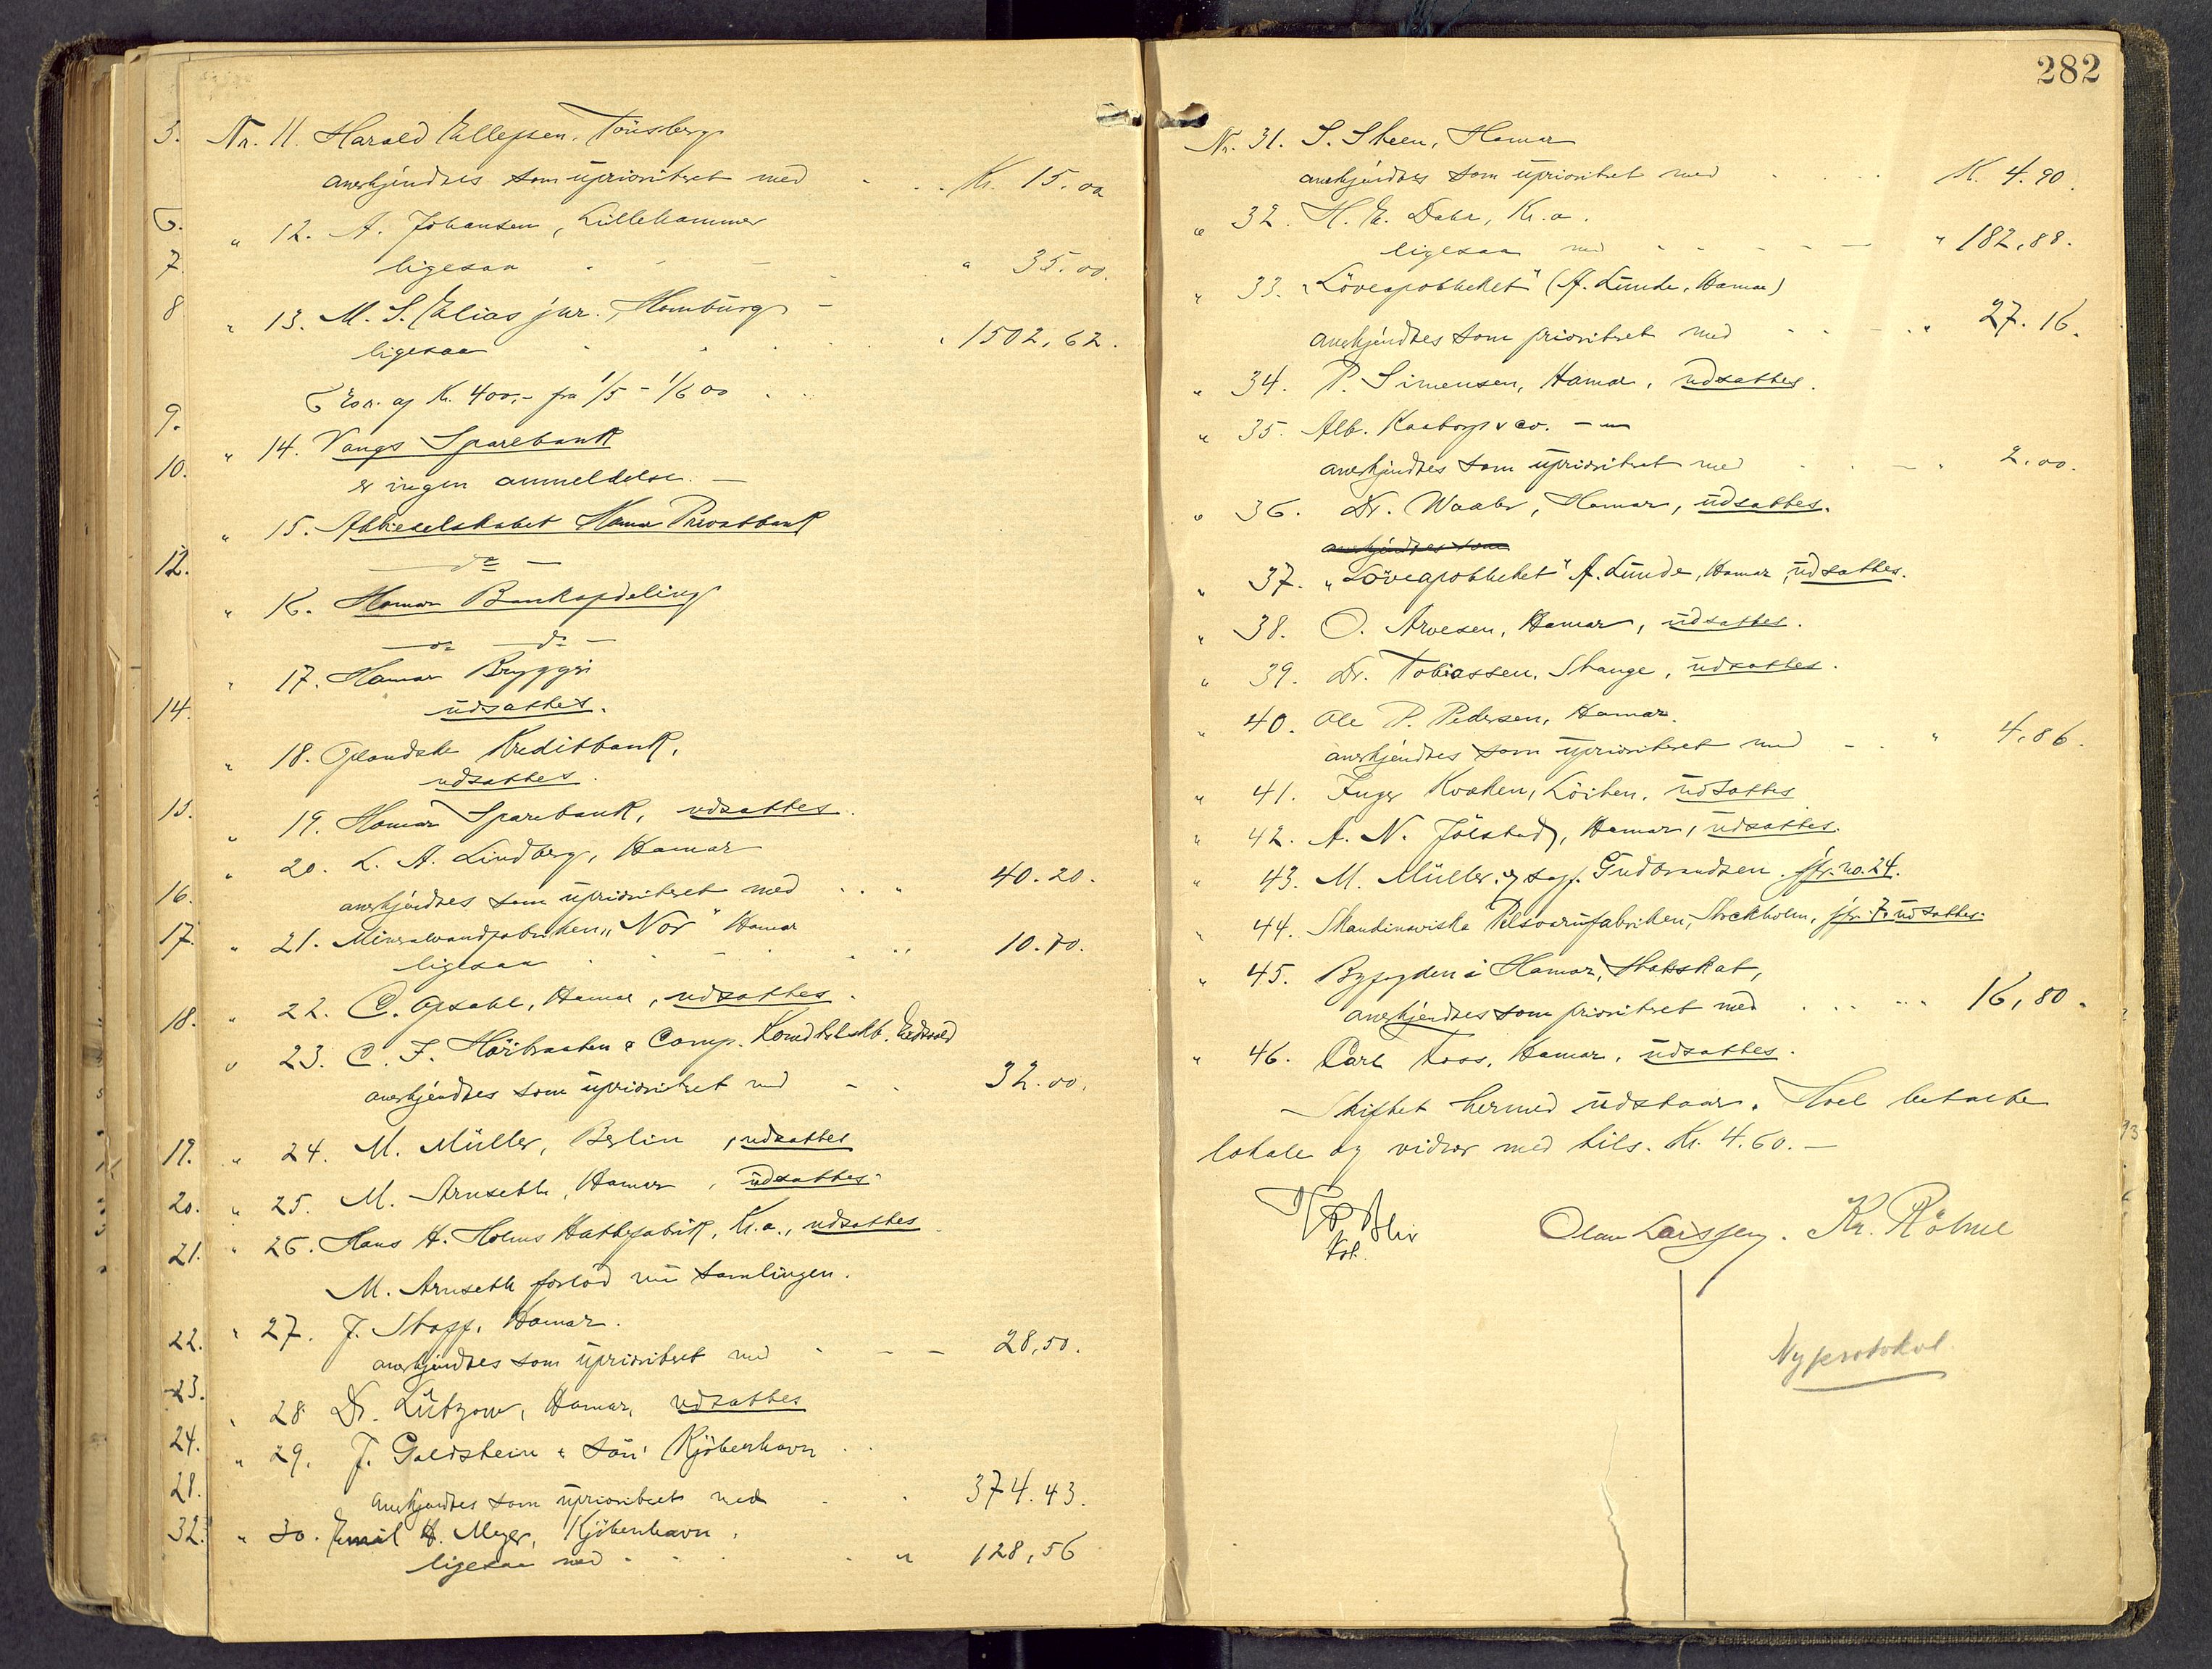 Nr. 11. Harald Ellefsen, Tönsberg
anerkjendtes som uprioriteret med Kr. 15.00
" 12. A. Johansen, Lillehammer
ligesaa " 35.00.
" 13. M. S. Elias jur., Hamburg
ligesaa " 1502,62.
af Kr. 400,- fra 1/5 - 1/6 00
" 14. Vangs Sparebank
er ingen anmeldelse. —
" 15. Aktieselskabet Hamar Privatbank
— do —
" 16. Hamar Bankafdeling
— do —
" 17. Hamar Bryggri
udsattes.
" 18. Oplandske Kreditbank,
udsattes.
" 19. Hamar Sparebank, udsattes.
" 20. L. A. Lindberg, Hamar
anerkjendtes som uprioriteret med " 40.20.
" 21. Mineralvandfabriken „Nor" Hamar
ligesaa " 10.70.
" 22. C. Opsahl, Hamar, udsattes.
" 23. C. F. & Comp. Eidsvold
anerkjendtes som uprioriteret med 32.00.
" 24. M. Müller, Berlin, udsattes
" 25. M. Arnseth, Hamar, udsattes.
" 26. Hans H. Holms Hattefabrik, Kr.a., udsattes
M. Arnseth forlod nu samlingen.
" 27. J. Stoff, Hamar.
anerkjendtes som uprioriteret med 28,50.
" 28 Dr. Lützow, Hamar, udsattes
" 29. J. Goldstein & Sön Kjöbenhavn
anerkjendtes som uprioriteret med 374.43.
" 30. Emil H. Meyer, Kjöbenhavn.
ligesaa med " 128,56
3.
6.
7
8
9.
10.
12.
14.
15.
16.
17.
18.
19.
20.
21.
22.
23.
24.
28.
32.
282
Nr. 31. S. Steen, Hamar
anerkjendtes som uprioriteret med K. 4.90.
" 32. H. E. Dahr, Kr.a.
ligesaa med " 182,88.
" 33. „Löveapotheket" (A. Lunde, Hamar)
anerkjendtes som prioriteret med " 27.16.
" 34. P. Simensen, Hamar, udsattes.
" 35. Alb. Kaaborg & co. — "
anerkjendtes som uprioriteret med " 2.00.
" 36. Dr. Waaler, Hamar, udsattes.
anerkjendtes som
" 37. „Löveapotheket" A. Lunde, Hamar, udsattes.
" 38. O. Arvesen, Hamar, udsattes.
" 39. Dr. Tobiassen, Stange, udsattes.
" 40. Ole P. Pedersen, Hamar.
anerkjendtes som uprioriteret med " 4,86.
" 41. Inger Kvaken, Löiten, udsattes
" 42. A. N. Jölstad, Hamar, udsattes.
" 43. M. Müller. ved sagf. Gudbrandsen. jfr. no. 24.
" 44. Skandinaviska Pelsvarufabriken, Stockholm, jfr. 7. udsattes.
" 45. Byfogden i Hamar, statsskat,
anerkjendtes som prioriteret med 16,80.
" 46. Carl Foss, Hamar, udsattes.
Skiftet hermed udstaar. Hoel betalte
lokale og vidner med tils. Kr. 4.60. —
Olav Larssen. Kr. Röhne
Ny protokol.